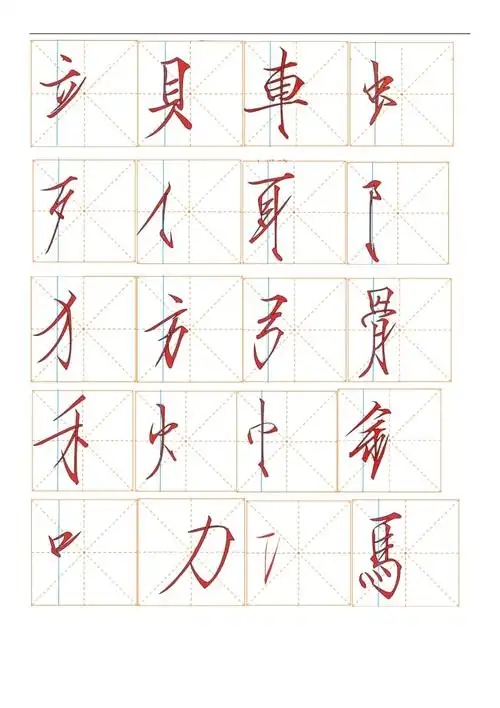 貝 車 虫
歹 亻 耳
犭 方 弓 骨
禾 火 巾 金
口 力 馬